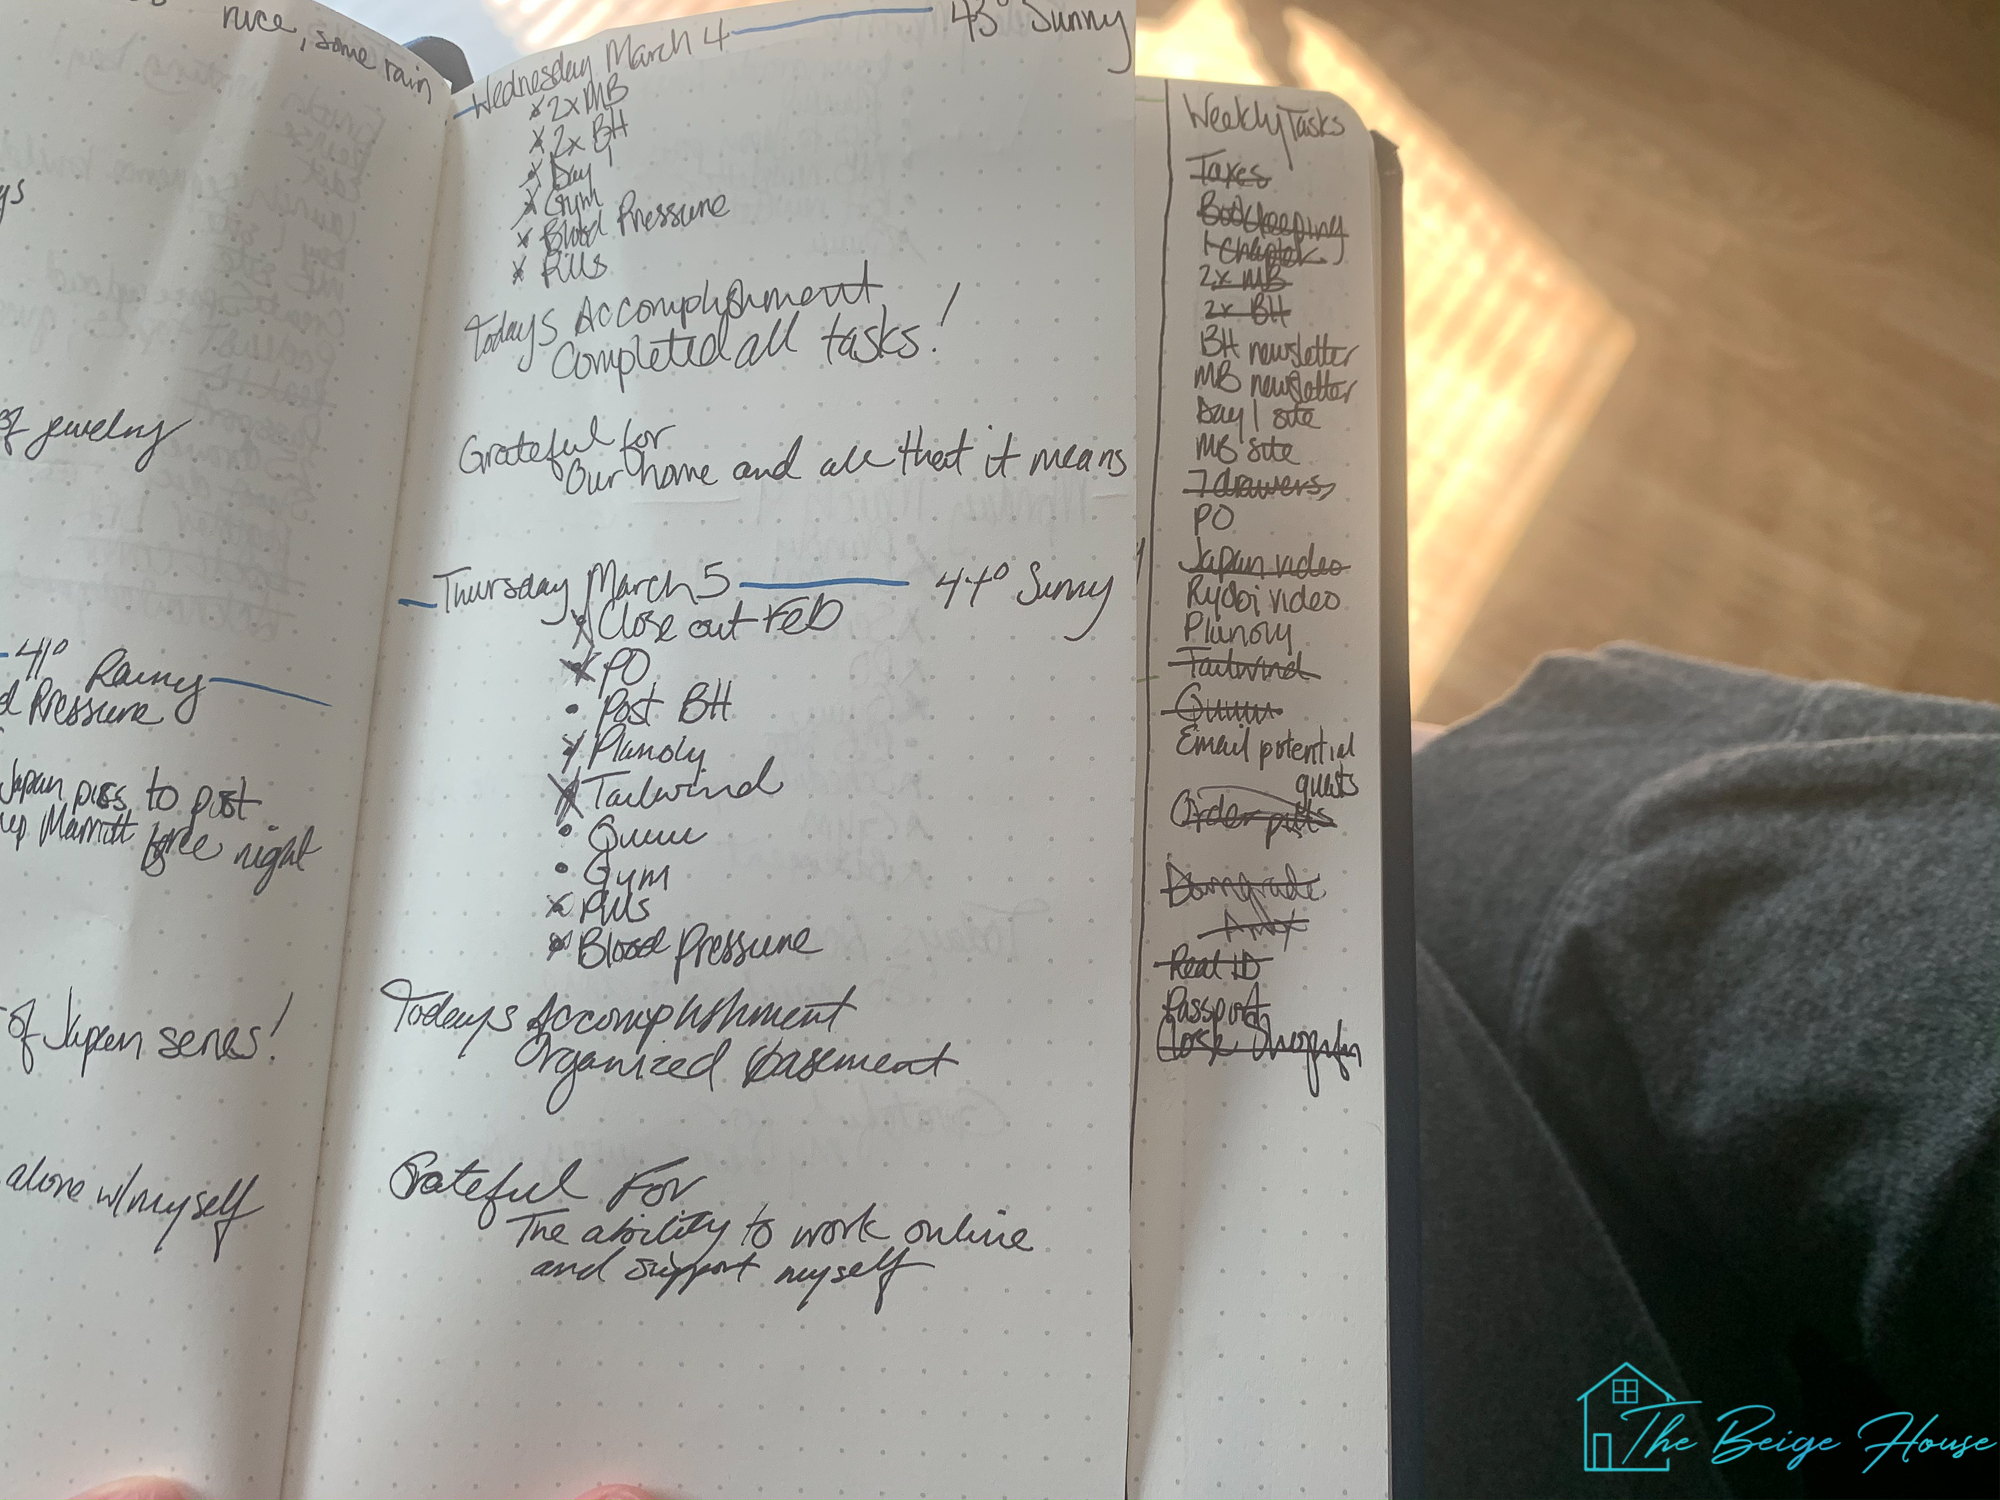 nice, some rain
ys
of jewelry
41° Rainy
d Pressure
Japan pics to post
Marriott free night
of Japan series!
alone w/myself
Wednesday March 4 43° Sunny
x 2x MB
x 2x BH
x Day 1
x Gym
x Blood Pressure
x Pills
Todays Accomplishment
Completed all tasks!
Grateful for
Our home and all that it means
Thursday March 5 44° Sunny
x Close out Feb
x PO
• Post BH
x Planoly
x Tailwind
• Quuu
• Gym
x Pills
x Blood Pressure
Todays Accomplishment
Organized basement
Grateful For
The ability to work online
and support myself
Weekly Tasks
Taxes
Bookkeeping
1 chapter
2x MB
2x BH
BH newsletter
MB newsletter
Day 1 site
MB site
7 drawers
PO
Japan video
Ryobi video
Planoly
Tailwind
Quuu
Email potential
guests
Order pulls
Downgrade
Real ID
Passport
The Beige House